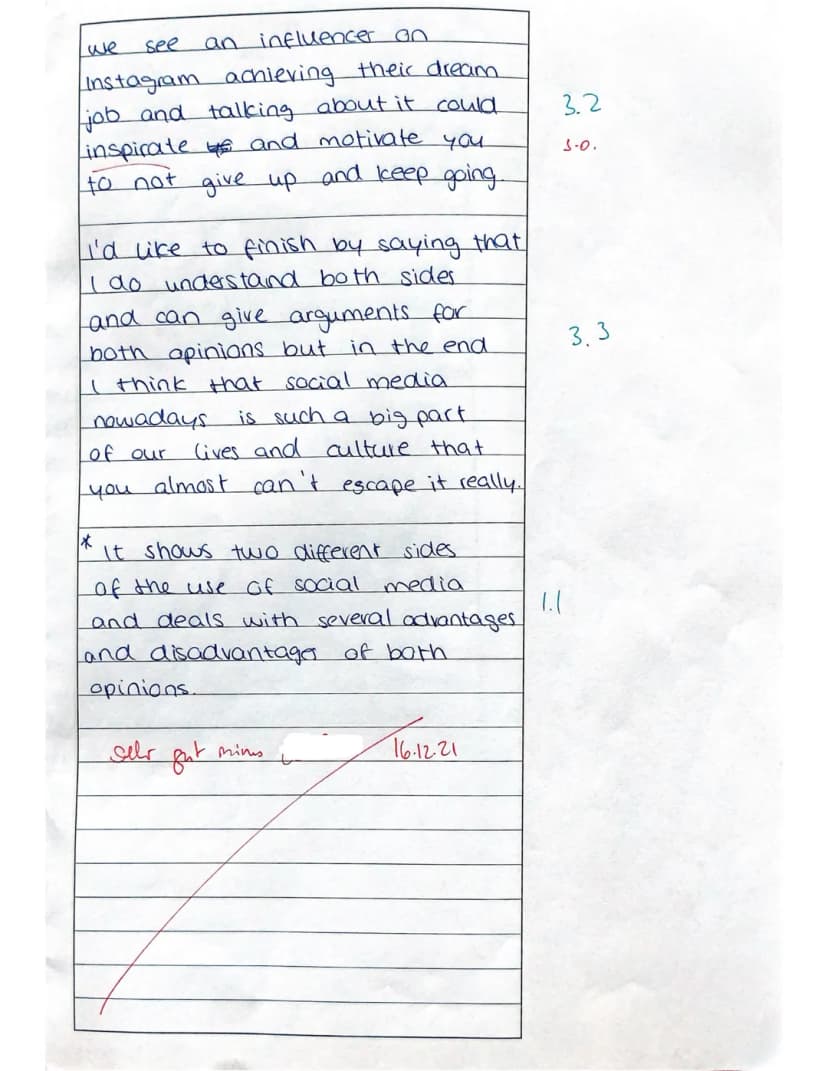 we see an influencer on
Instagram achieving their dream
job and talking about it could
3.2
inspirate and motivate you
s.o.
to not give up and keep going.
I'd like to finish by saying that
I do understand both sides
and can give arguments for
3.3
both opinions but in the end
I think that social media
nowadays is such a big part
of our lives and culture that
you almost can't escape it really.
* It shows two different sides
of the use of social media
1.1
and deals with several advantages
and disadvantages of both
opinions.
sehr gut minus 16.12.21